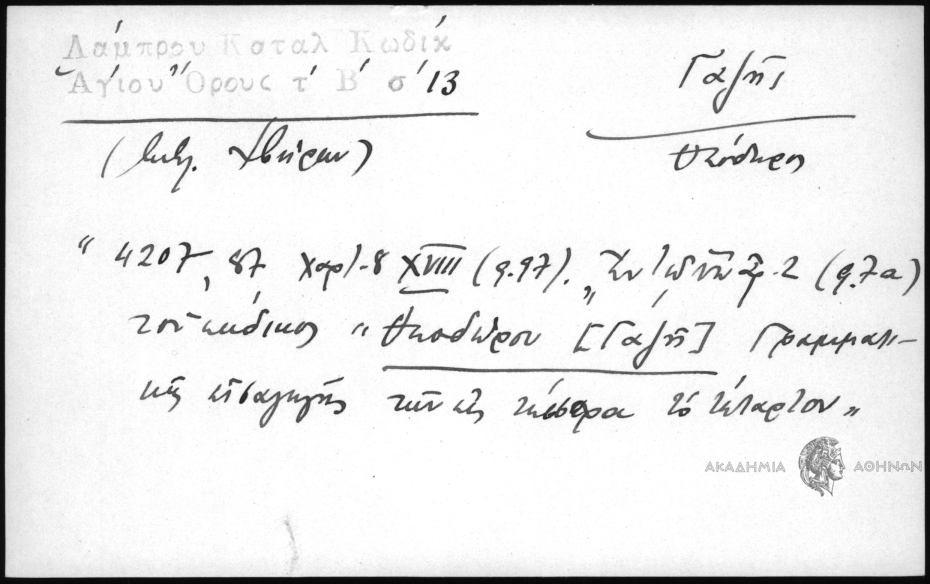 Λάμπρου Καταλ Κωδίκ
Ἁγίου Ὄρους τ' Β' σ' 13
Γαζῆς
Θεόδωρος
(Μον. Ἰβήρων)
"4207, 87. Χαρτ. 8 XVIII (φ. 97). "Ἐν τῷ ὑπ' ἀρ. 2 (φ. 7α)
τοῦ κώδικος "Θεοδώρου [Γαζῆ] Γραμματι-
κῆς εἰσαγωγῆς τῶν εἰς τέσσαρα τὸ τέταρτον"
ΑΚΑΔΗΜΙΑ ΑΘΗΝΩΝ